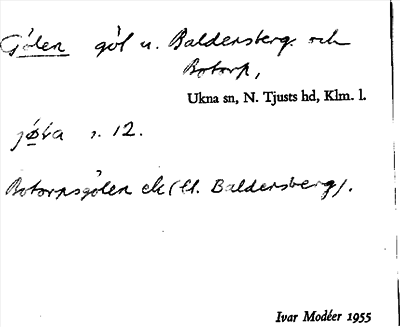 Gölen göl u. Baldersberg och
Botorp,
Ukna sn, N. Tjusts hd, Klm. l.
s. 12.
Botorpsgölen ek (u. Baldersberg).
Ivar Modéer 1955